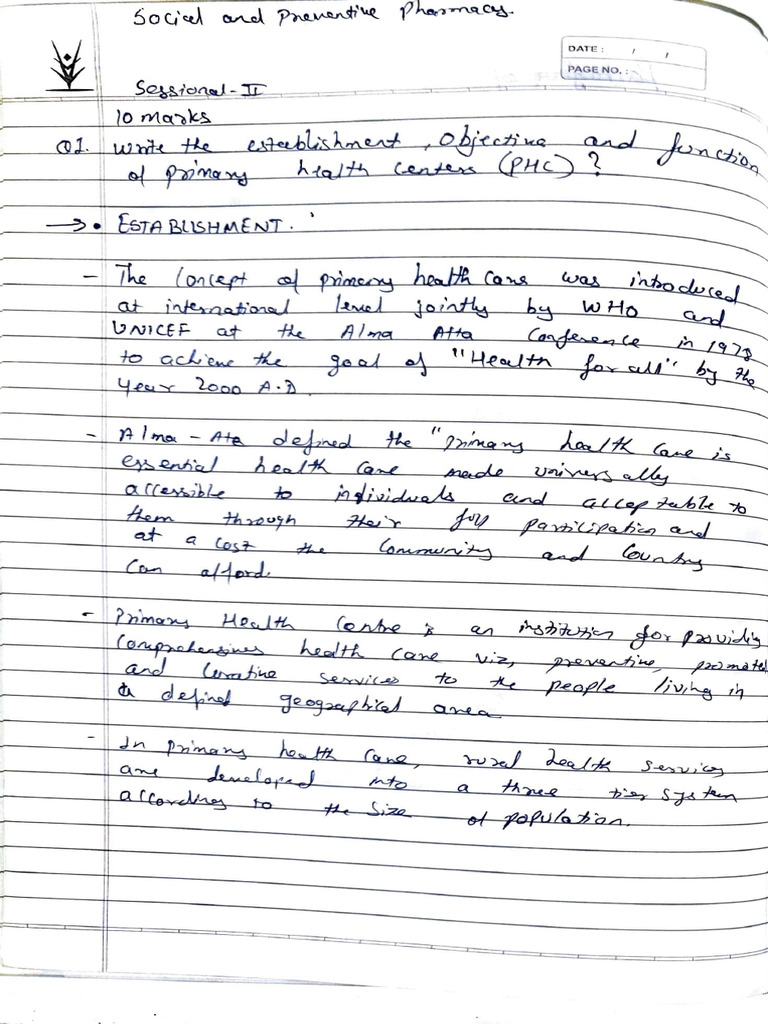 Social and Preventive Pharmacy.
DATE : / /
PAGE NO. :
Sessional - II
10 marks
Q1. Write the establishment, objective and function
of primary health centers (PHC) ?
→ • ESTABLISHMENT.
- The concept of primary health care was introduced
at international level jointly by WHO and
UNICEF at the Alma Atta Conference in 1978
to achieve the goal of "Health for all" by the
year 2000 A.D.
- Alma - Ata defined the "primary health care is
essential health care made universally
accessible to individuals and acceptable to
them through their full participation and
at a cost the community and country
can afford.
- Primary Health Centre is an institution for providing
comprehensives health care viz, preventive, promote
and curative services to the people living in
a defined geographical area
- In primary health care, rural health services
are developed into a three tier system
according to the size of population.